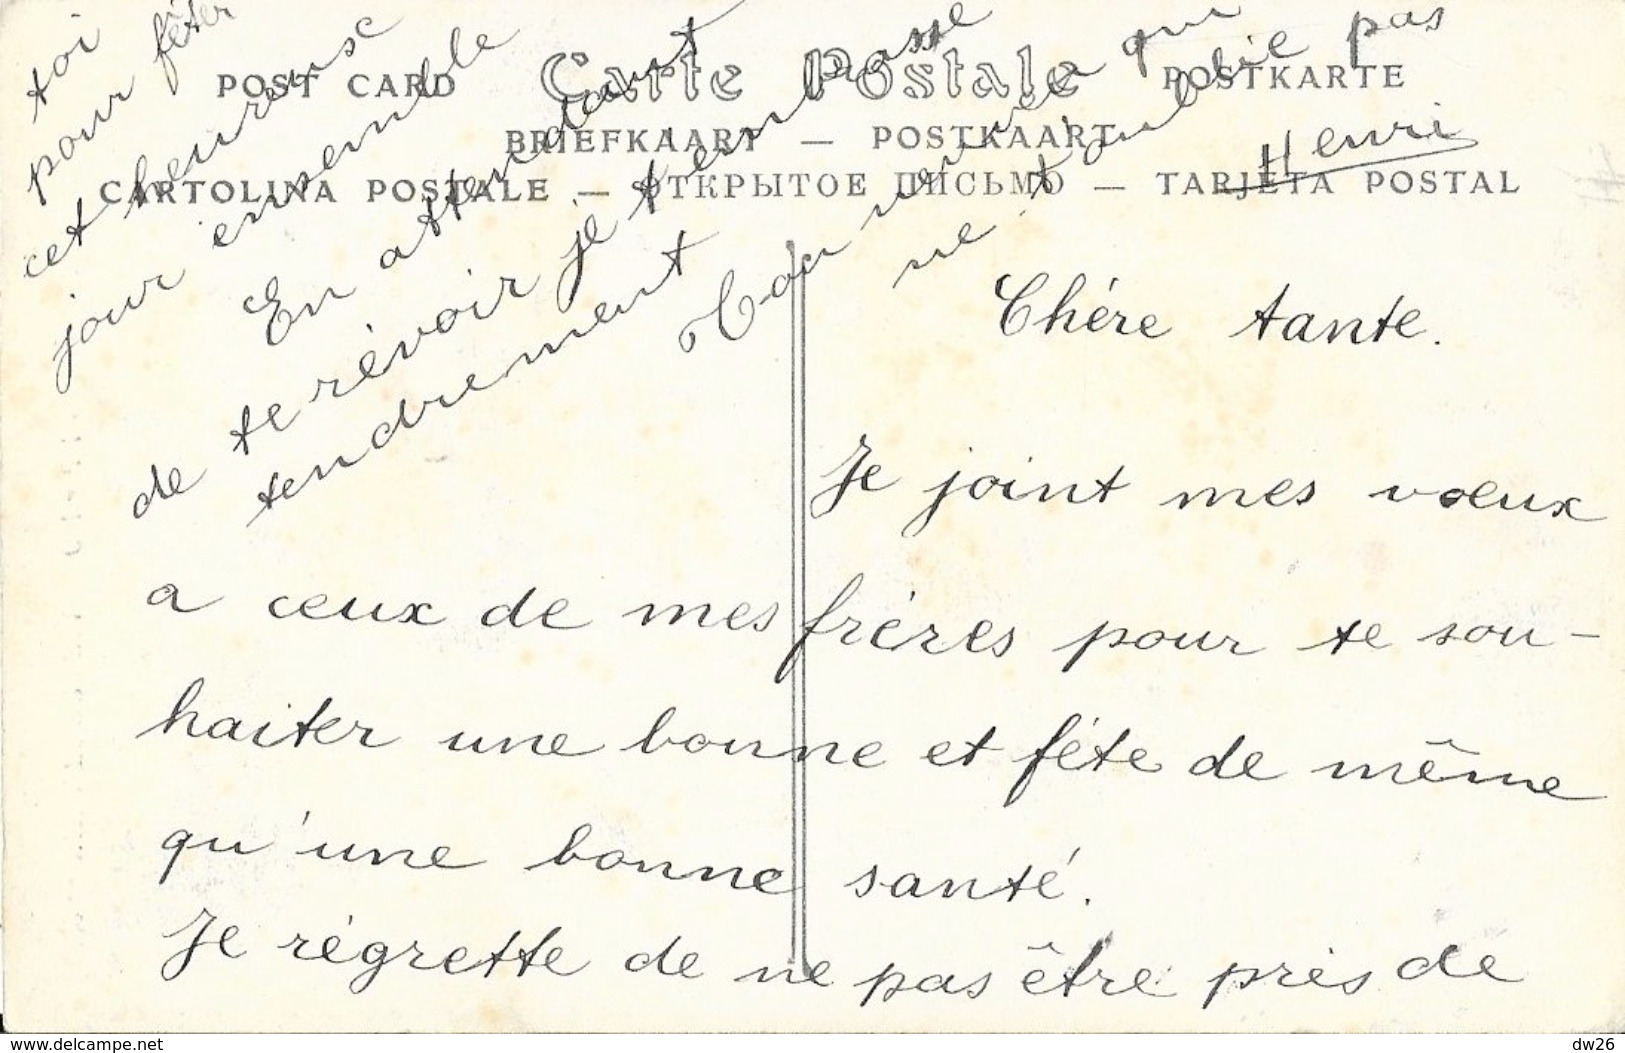 POST CARD Carte Postale POSTKARTE
BRIEFKAART — POSTKAART
CARTOLINA POSTALE — ОТКРЫТОЕ ПИСЬМО — TARJETA POSTAL
Chére tante.
Je joint mes vœux
a ceux de mes fréres pour te sou-
haiter une bonne et féte de même
qu'une bonne santé.
Je régrette de ne pas être près de
toi
pour fêter
cet heureuse
jour ensemble
En attendant
de te révoir je t'embrasse
tendrement
Ton neveu qui
ne t'oublie pas
Henri
delcampe.net
dw26